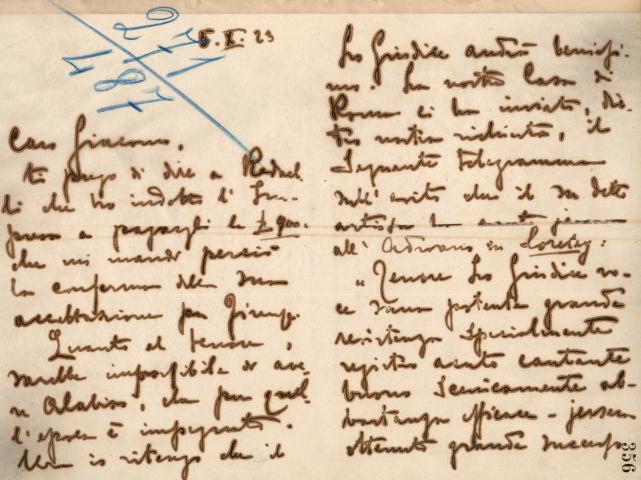 5. X. 23
271
487
Caro Giacomo,
ti prego di dire a Radael-
li che ho indotto l'Im-
presa a pagargli le £ 900.
che mi mandi perciò
la conferma della sua
accettazione per Firenze.
Quanto al tenore,
sarebbe impossibile di ave-
re Alabiso, che per quel-
l'epoca è impegnato.
Ma io ritengo che il
Lo Giudice andrà benissi-
mo. La nostra Casa di
Roma ci ha inviato, die-
tro nostra richiesta, il
seguente telegramma
sull'esito che il su detto
artista ha
all'Adriano in Loreley:
"Tenore Lo Giudice vo-
ce sana potente grande
resistenza specialmente
registro acuto cantante
buono scenicamente ab-
bastanza efficace - jersera
ottenuto grande successo
356